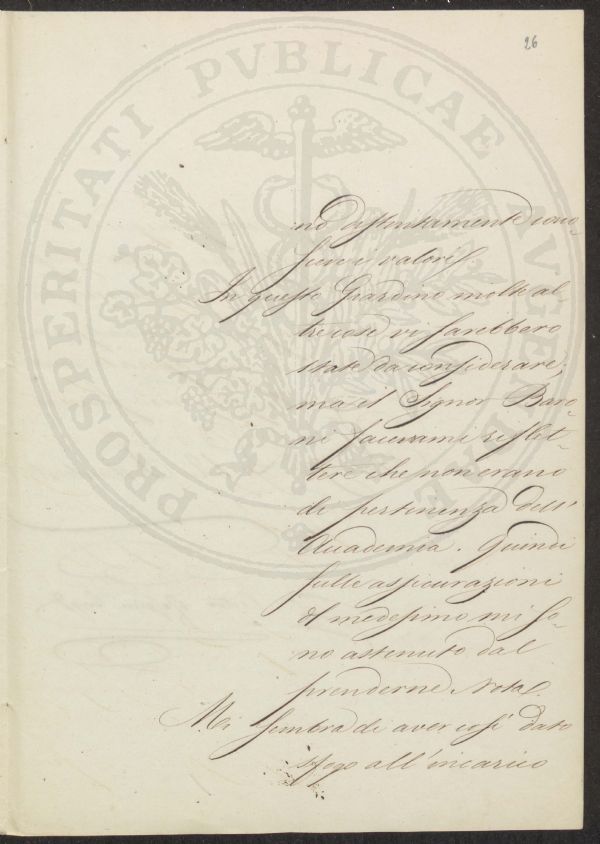 26
PROSPERITATI PVBLICAE AVGENDAE
no distintamente cono-
scere i valori.
In questo Giardino molte al-
tre cose vi sarebbero
state da considerare;
ma il Signor Baro-
ni facevami riflet-
tere che non erano
di pertinenza dell'
Accademia. Quindi
sulle assicurazioni
del medesimo mi so-
no astenuto dal
prenderne Nota.
Mi sembra di aver così dato
sfogo all'incarico